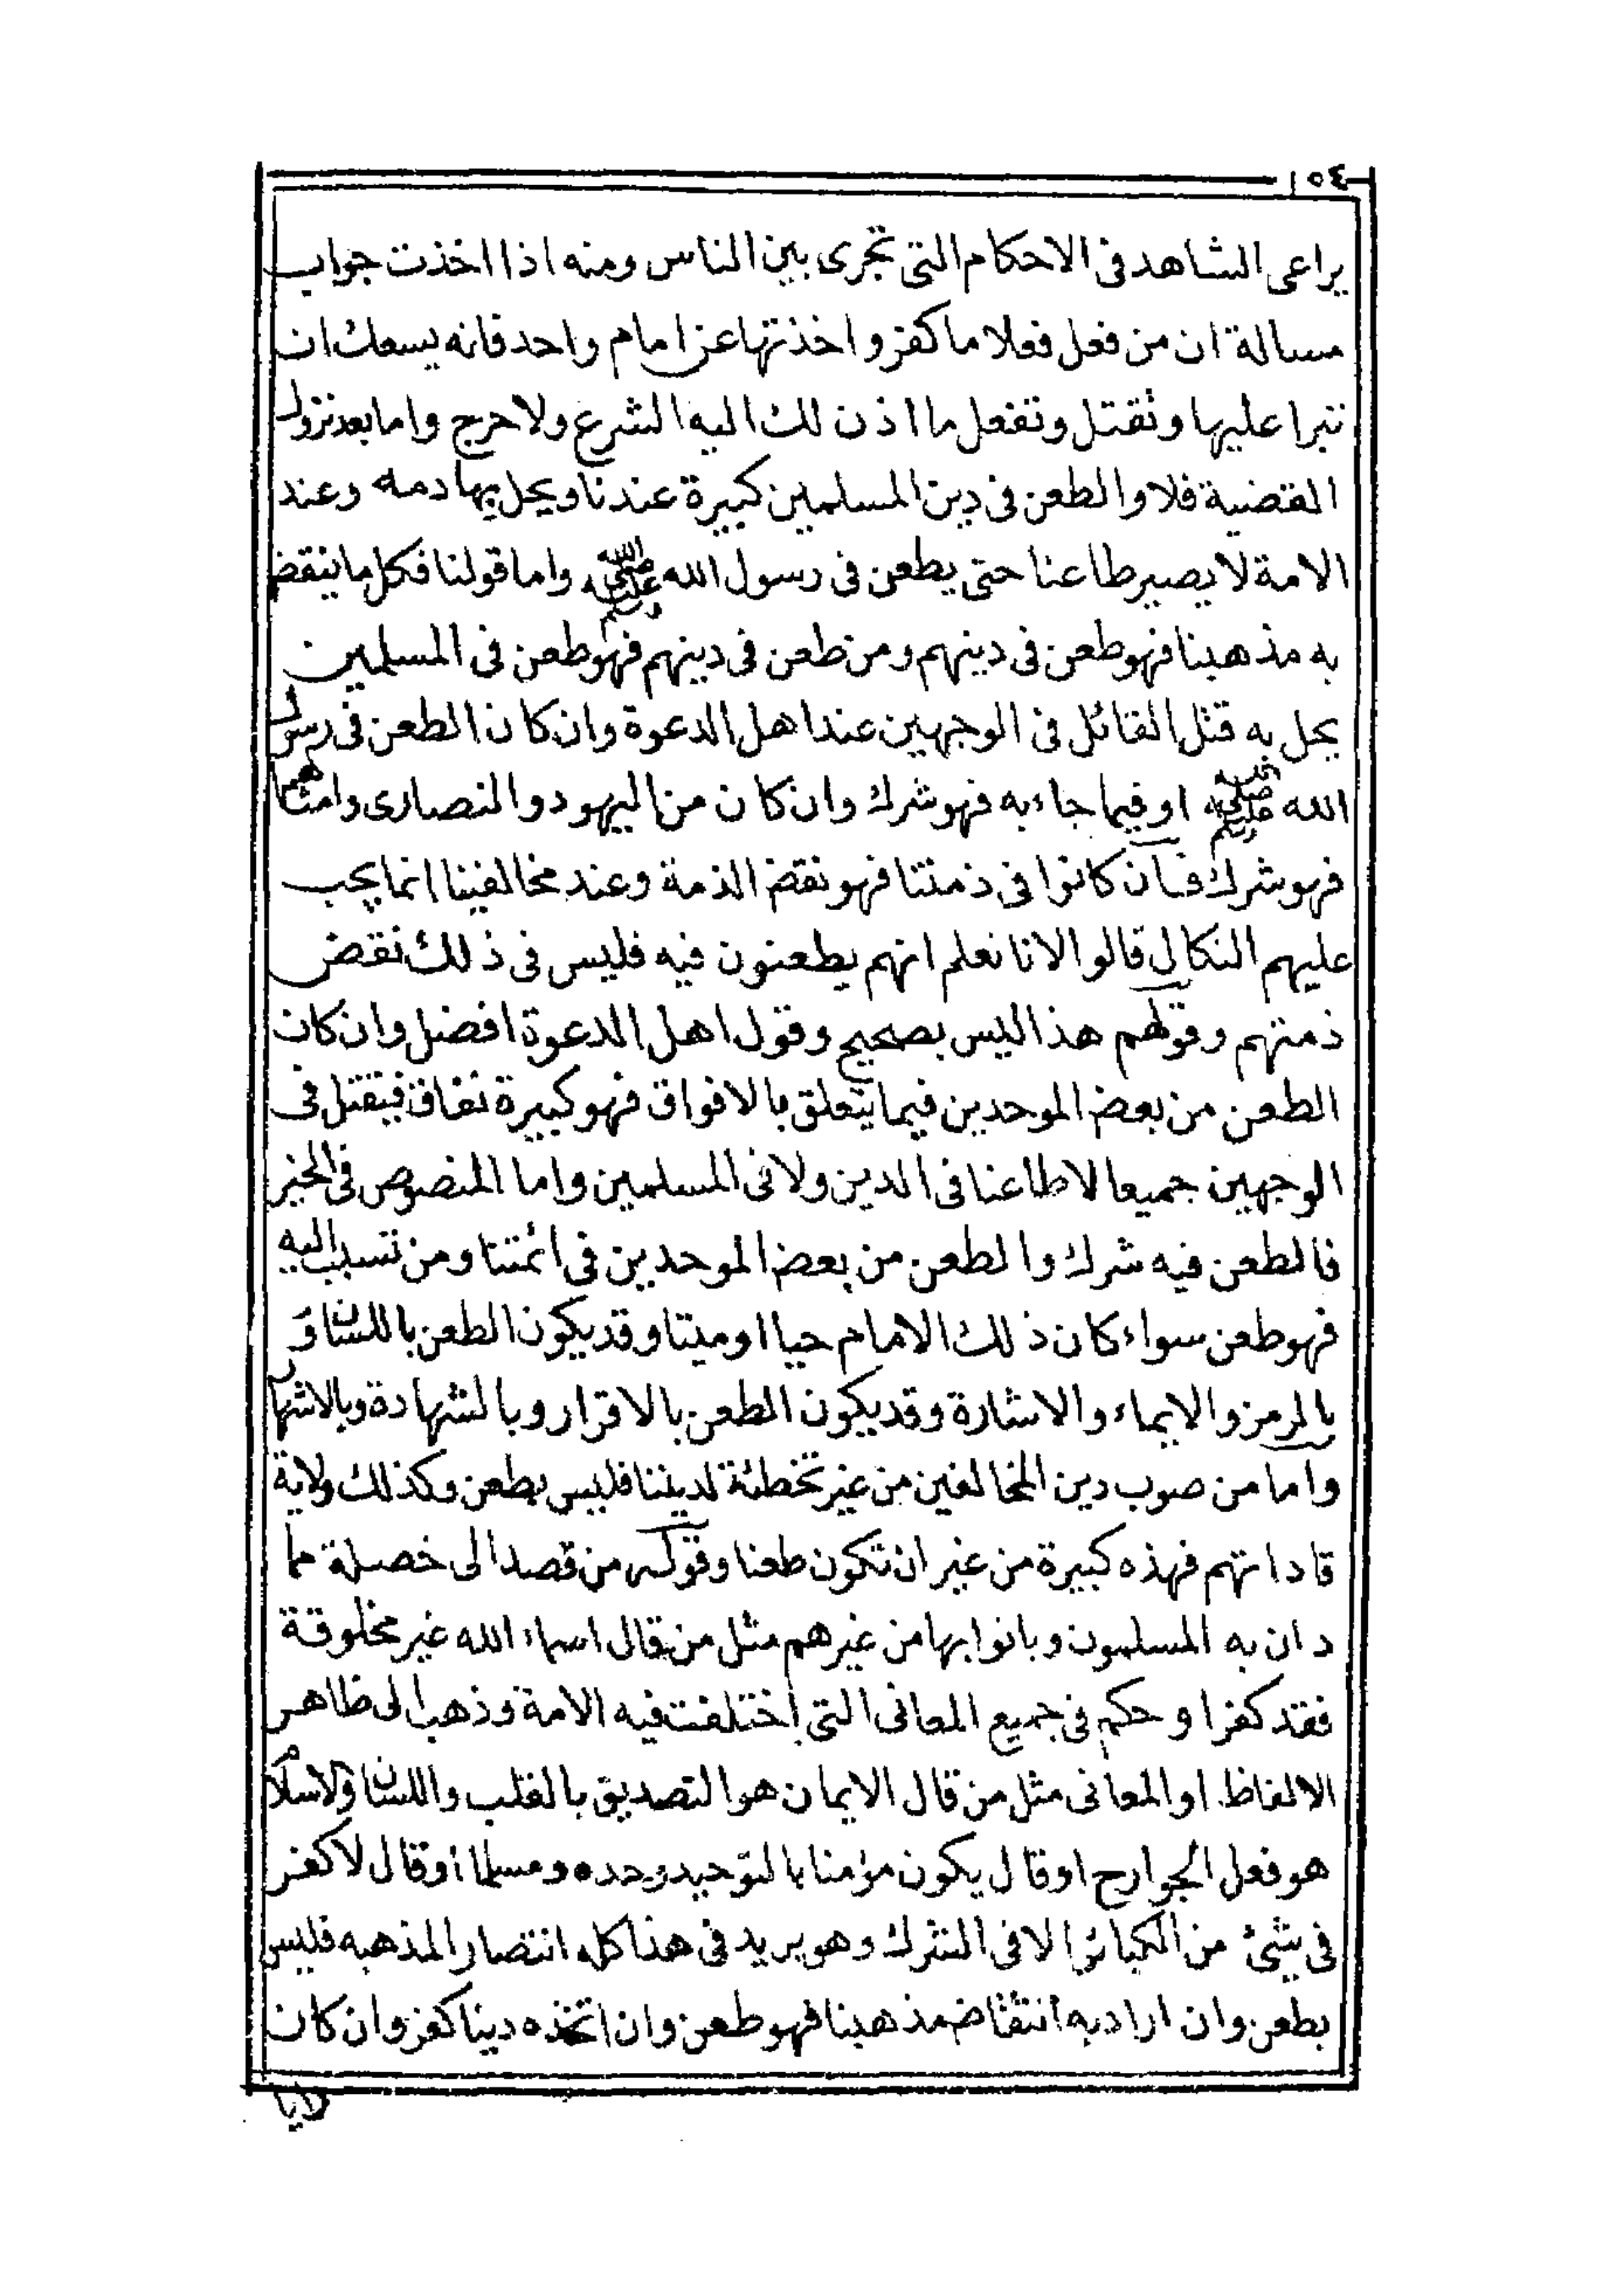 ١٥٤
يراعى الشاهد فى الاحكام التى تجرى بين الناس ومنه اذا اخذت جواب
مسالة ان من فعل فعلا ما كفر واخذتها عن امام واحد فانه يسعك ان
تتبرا عليها وتقتل وتفعل ما اذن لك اليه الشرع ولا حرج واما بعد نزول
القضية فلا والطعن فى دين المسلمين كبيرة عندنا ويحل بها دمه وعند
الامة لا يصير طاعنا حتى يطعن فى رسول الله صلى الله عليه وسلم واما قولنا فكل ما ينقض
به مذهبنا فهو طعن فى دينهم ومن طعن فى دينهم فهو طعن فى المسلمين
يحل به قتل القائل فى الوجهين عند اهل الدعوة وان كان الطعن فى رسول
الله صلى الله عليه وسلم او فيما جاء به فهو شرك وان كان من اليهود والنصارى وامثالهم
فهو شرك فان كانوا فى ذمتنا فهو نقض الذمة وعند مخالفينا انما يجب
عليهم النكال قالوا لانا نعلم انهم يطعنون فيه فليس فى ذلك نقض
ذمتهم وقولهم هذا ليس بصحيح وقول اهل الدعوة افضل وان كان
الطعن من بعض الموحدين فيما يتعلق بالافواق فهو كبيرة نفاق فيقتل فى
الوجهين جميعا لا طاعنا فى الدين ولا فى المسلمين واما المنصوص فى الخبر
فالطعن فيه شرك والطعن من بعض الموحدين فى ائمتنا ومن نتسب اليه
فهو طعن سواء كان ذلك الامام حيا او ميتا وقد يكون الطعن باللسان و
بالرمز والايماء والاشارة وقد يكون الطعن بالاقرار وبالشهادة وبالاشهار
واما من صوب دين المخالفين من غير تخطئة لديننا فليس بطعن وكذلك ولاية
قاداتهم فهذه كبيرة من غير ان تكون طعنا وقوله من قصد الى خصلة مما
دان به المسلمون وبانوا بها من غيرهم مثل من قال اسماء الله غير مخلوقة
فقد كفر او حكم فى جميع المعانى التى اختلفت فيه الامة وذهب الى ظاهر
الالفاظ او المعانى مثل من قال الايمان هو التصديق بالقلب واللسان والاسلام
هو فعل الجوارح او قال يكون مؤمنا بالتوحيد وحده ومسلما او قال لا كفر
فى شئ من الكبائر الا فى الشرك وهو يريد فى هذا كله انتصارا لمذهبه فليس
بطعن وان اراد به انتقاض مذهبنا فهو طعن وان اتخذه دينا كفر وان كان